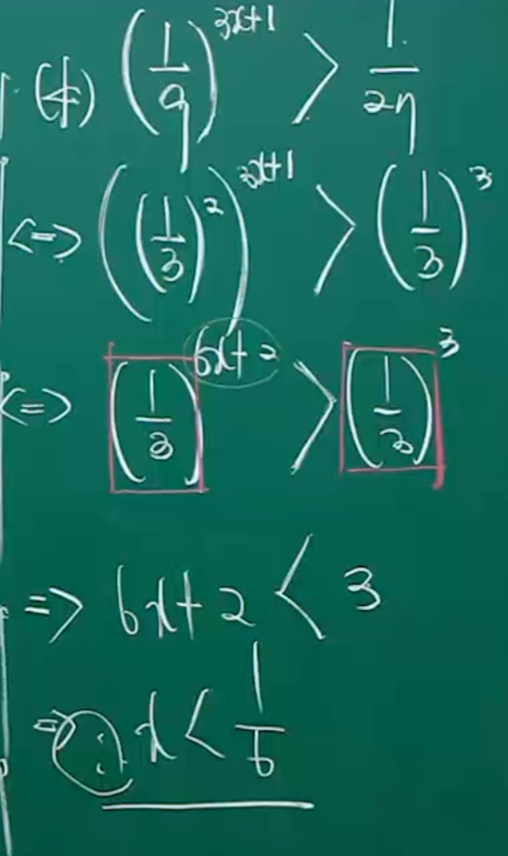 (4) (1/9)^(3x+1) > 1/27
<=> ((1/3)^2)^(3x+1) > (1/3)^3
<=> (1/3)^(6x+2) > (1/3)^3
=> 6x+2 < 3
=> ∴ x < 1/6